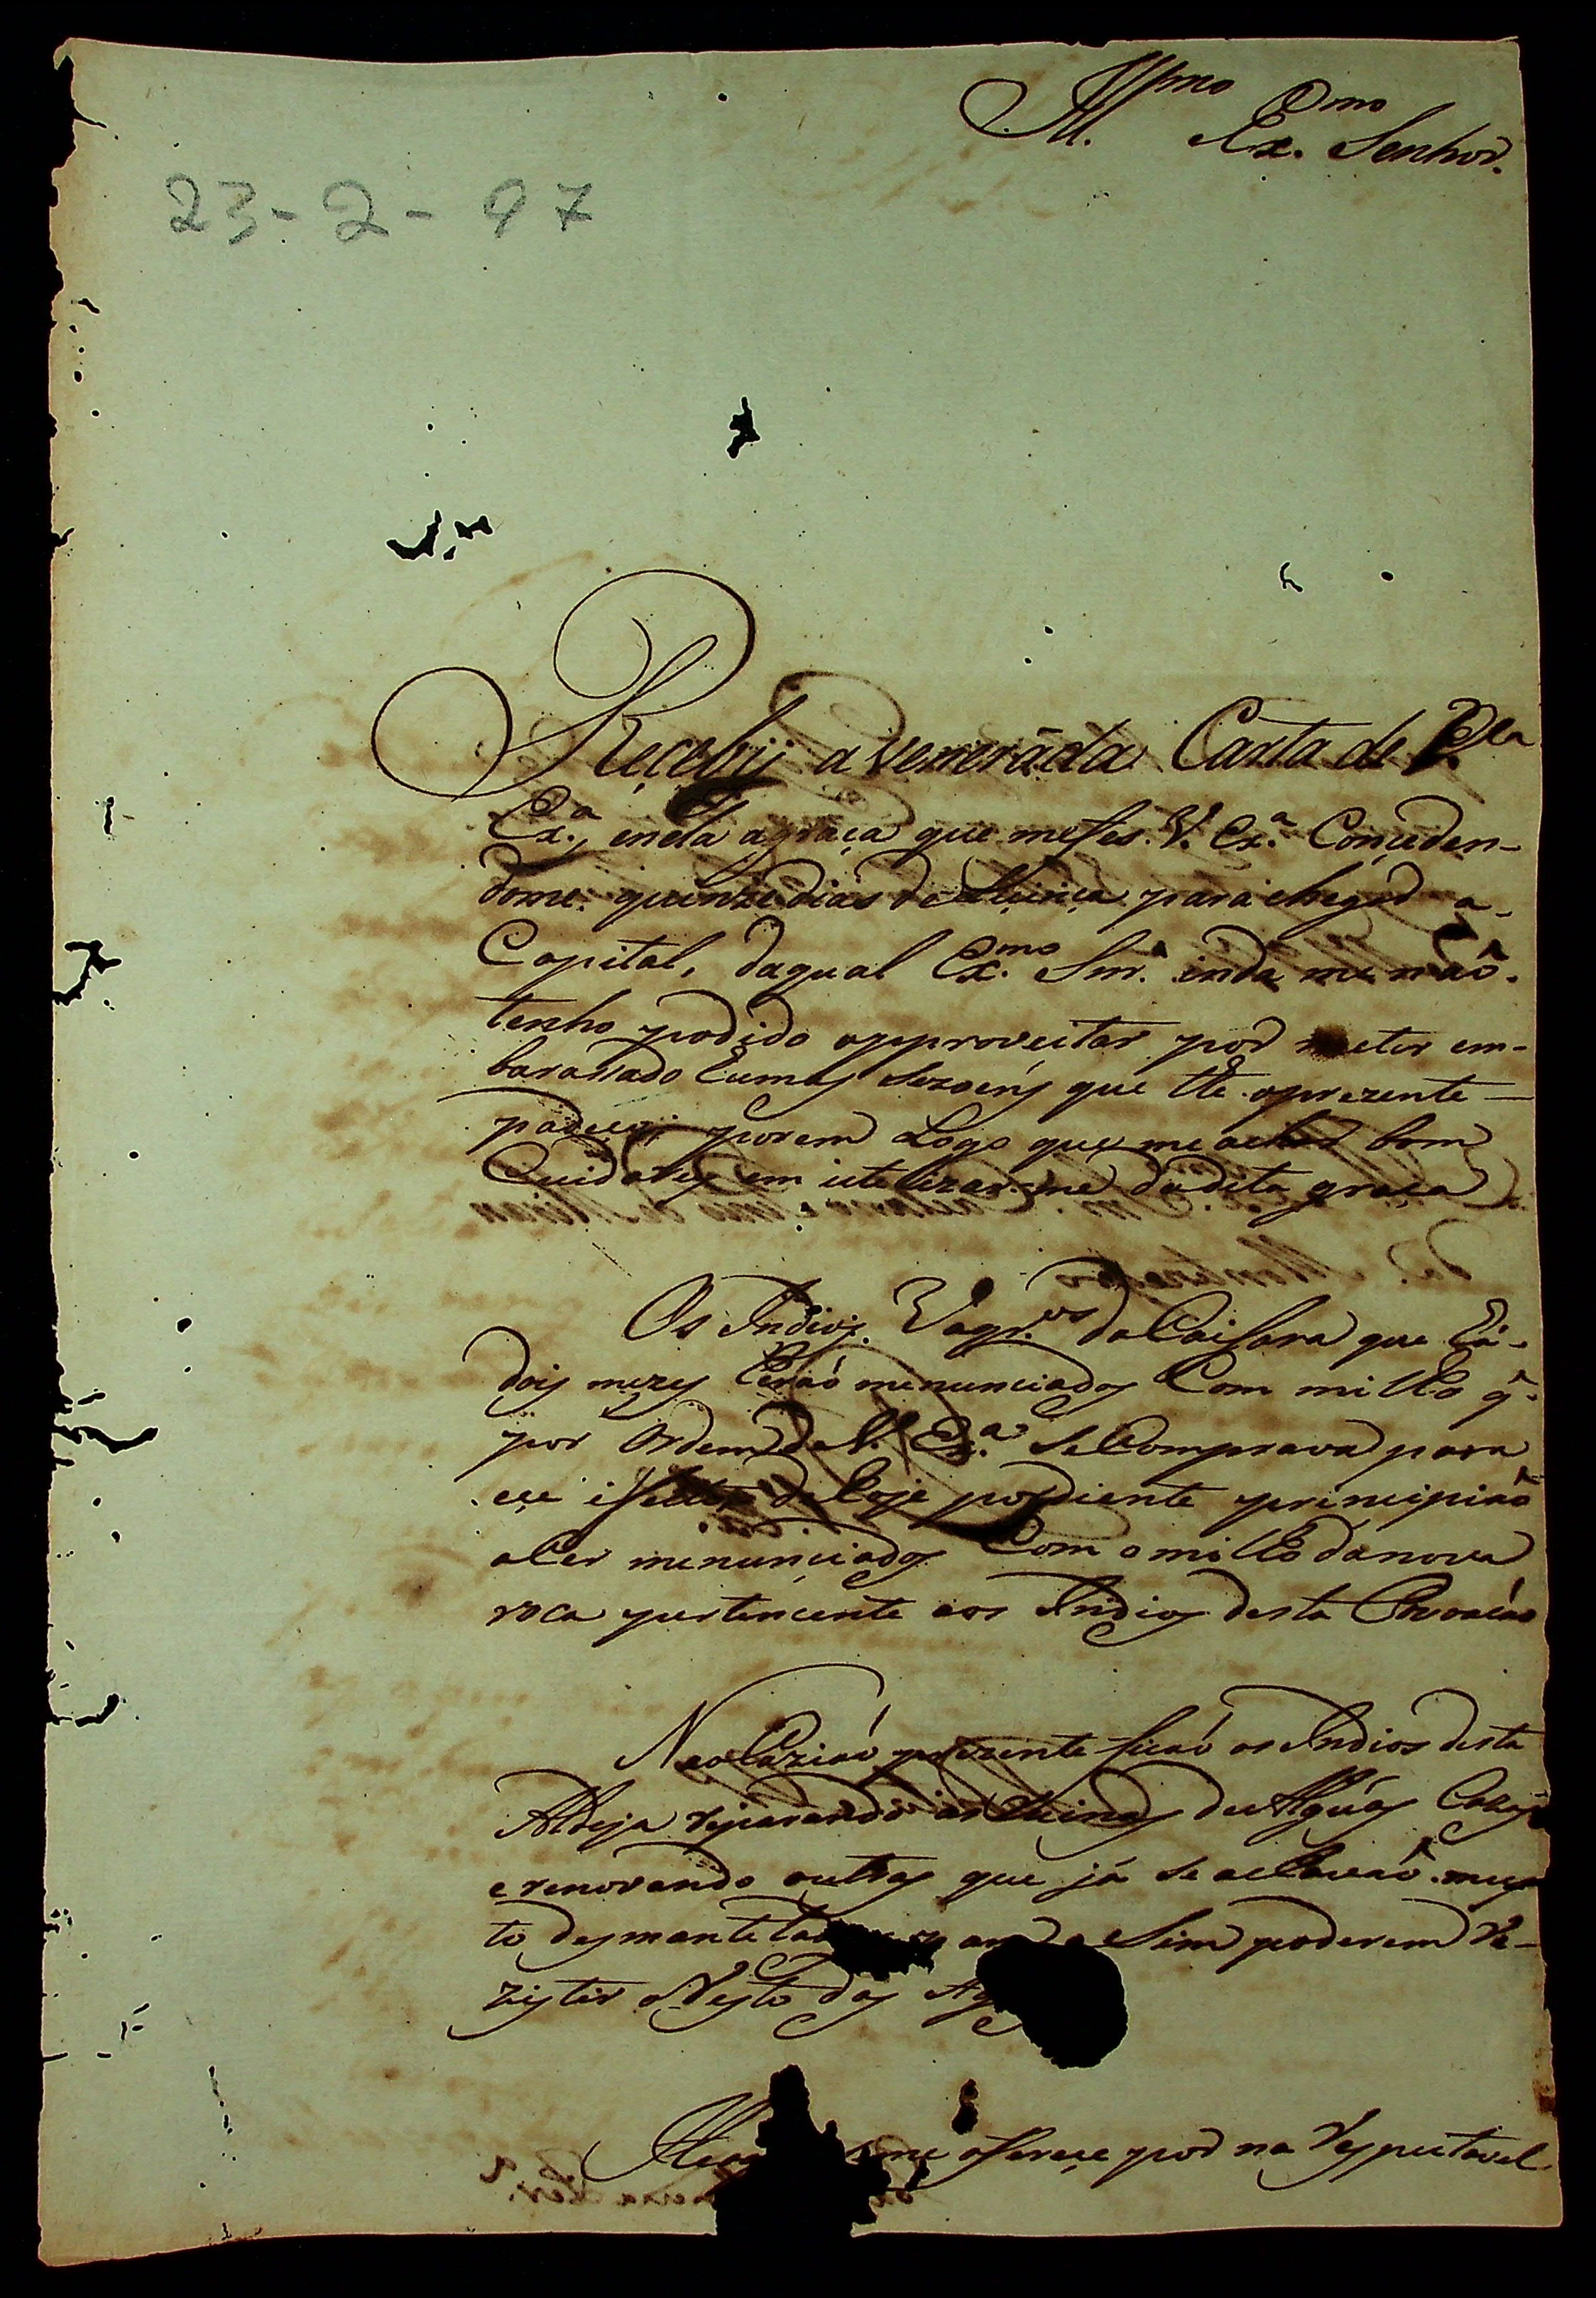 Ill.mo Ex.mo Senhor.
23-2-97
Recebij a venerada Carta de V.
Ex.a, enela agraça que mefes. V. Ex.a Conceden-
dome. quinze dias de Lliença para chegar a-
Capital, daqual Ex.mo Snr. inda me naõ.
tenho podido approveitar por meter em-
barassado humas Sezoens que the oprezente
padeço; porem Logo que me achar bom
Cuidarey em utelizar-me dadita graça
Os Indios. da Caissara que há-
dois mezes heraõ menunciados Com milho q.
por Ordem de V. Ex.a seComprava para
ece de hoje pordiente principiaõ
aCer menunciados Com o milho danova
roca pertencente aos Indios desta
Na ocaziaõ prezente ficaõ os Indios desta
Aldeja reparando as de Alguas Cazas
erenovando outras que já se achavaõ. muy
to desmantelad para a Sim poderem Re-
zistir o Resto das Ag
me oferece por na Respeitavel